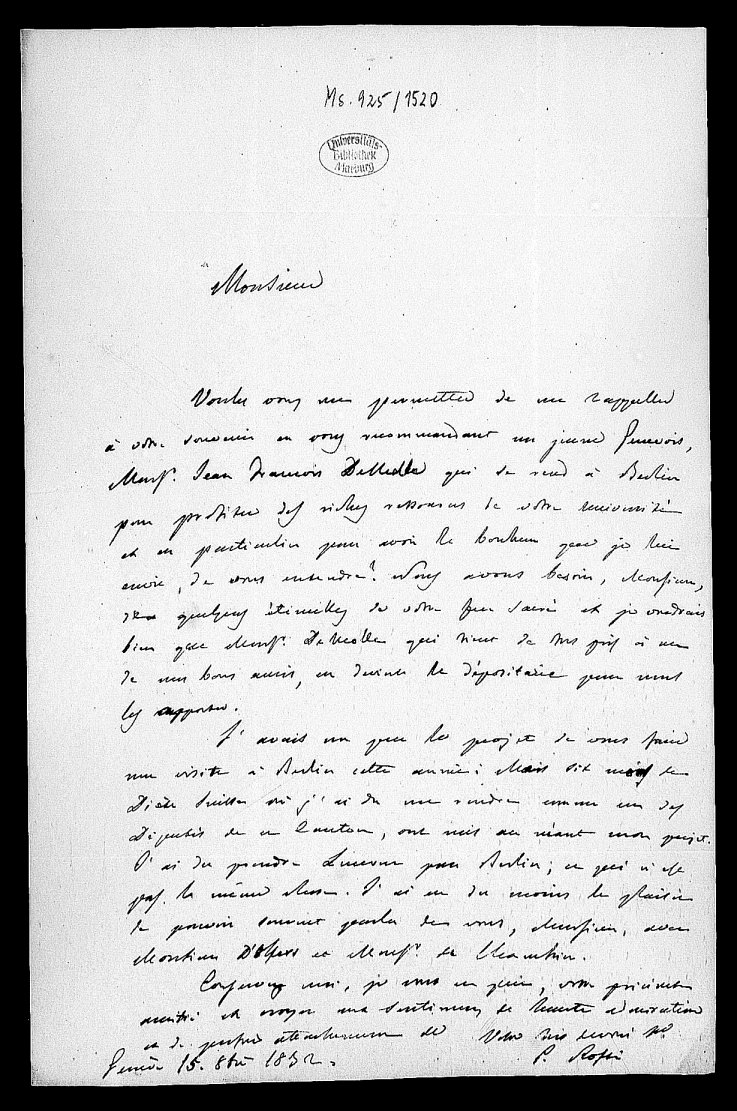 Ms. 925/1520
Universitäts-
Bibliothek
Marburg
Monsieur
Voulez vous me permettre de me rappeller
à votre souvenir en vous recommandant un jeune Genevois,
Monsr. Jean François DeMelle qui se rend à Berlin
pour profiter des riches ressources de votre université
et en particulier pour avoir le bonheur que je lui
envie, de vous entendre! Nous avons besoin, Monsieur,
de quelques étincelles de votre feu sacré et je voudrais
bien que Monsr. DeMelle qui vient de à un
de nos bons amis, en devint le dépositaire pour nous
les apporter.
J'avais un peu le projet de vous faire
une visite à Berlin cette année: Mais six mois de
Diète Suisse où j'ai du me rendre comme un des
Députés de ce Canton, ont mis au néant mon projet.
J'ai du prendre Lucerne pour Berlin; ce qui n'est
pas la même chose. J'ai eu du moins le plaisir
de pouvoir souvent parler de vous, Monsieur, avec
Monsieur D'Olfers et Monsr. de
Conservez moi, je vous en prie, votre précieuse
amitié et croyez aux sentimens de haute admiration
et de parfait attachement de Votre très devoué sr.
Genève 15. 8bre 1832. P. Rossi